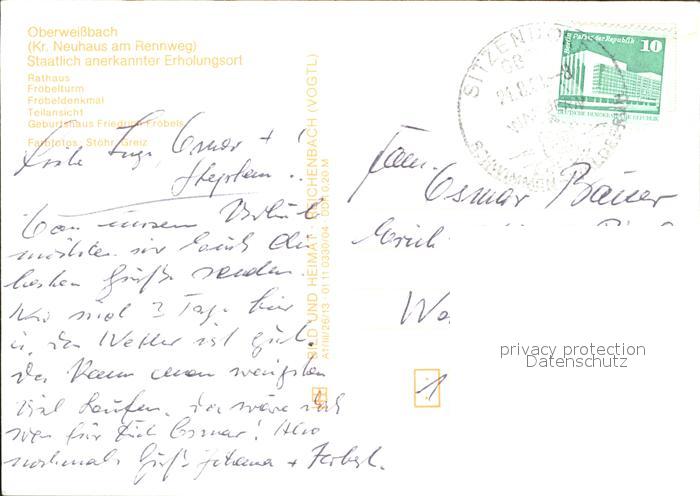 Oberweißbach
(Kr. Neuhaus am Rennweg)
Staatlich anerkannter Erholungsort
Rathaus
Fröbelturm
Fröbeldenkmal
Teilansicht
Geburtshaus Friedrich Fröbels
Farbfotos: Stöhr, Greiz
Osmar +
Stephan!
möchten wir Euch die
besten Grüße senden.
Wir sind 2 Tage hier
u. das Wetter ist gut.
Da kann man wenigsten
viel laufen, das wäre
was für Dich Osmar! Also
nochmals Grüße Johanna + Herbert.
BILD UND HEIMAT · REICHENBACH (VOGTL)
A1/III/26/13 · 01 11 0330/04 · DDR 0,20 M
SITZENDORF
Berlin Palast der Republik
10
DEUTSCHE DEMOKRATISCHE REPUBLIK
Fam.
Osmar Bauer
privacy protection
Datenschutz
1